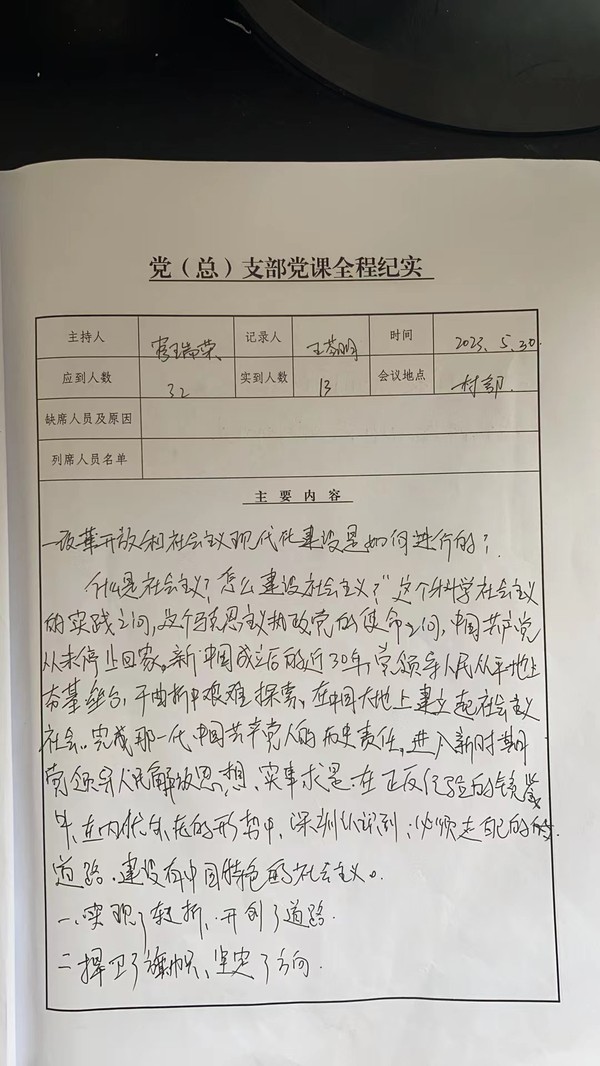 党（总）支部党课全程纪实
主持人 荣 记录人 王 时间 2023.5.30
应到人数 32 实到人数 13 会议地点 村部
缺席人员及原因
列席人员名单
主要内容
改革开放和社会主义现代化建设是如何进行的？
什么是社会主义？怎么建设社会主义？”这个科学社会主义
的实践之问，这个马克思主义执政党的使命之问，中国共产党
从未停止回答。新中国成立后的近30年，党领导人民从平地上
夯基垒台，于曲折中艰难探索，在中国大地上建立起社会主义
社会。完成那一代中国共产党人的历史责任。进入新时期
党领导人民解放思想、实事求是.在正反经验的镜鉴
中、在内优外在的形势中，深刻认识到：必须走自己的的
道路.建设有中国特色的社会主义。
一、实现了转折，开创了道路.
二捍卫了旗帜、坚定了方向.